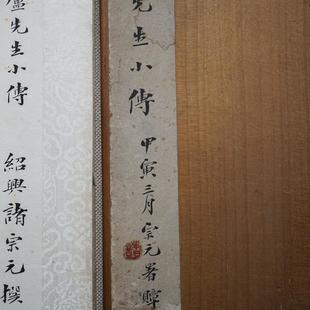 先生小傳 甲寅三月宗元署眉
盧先生小傳 紹興諸宗元撰